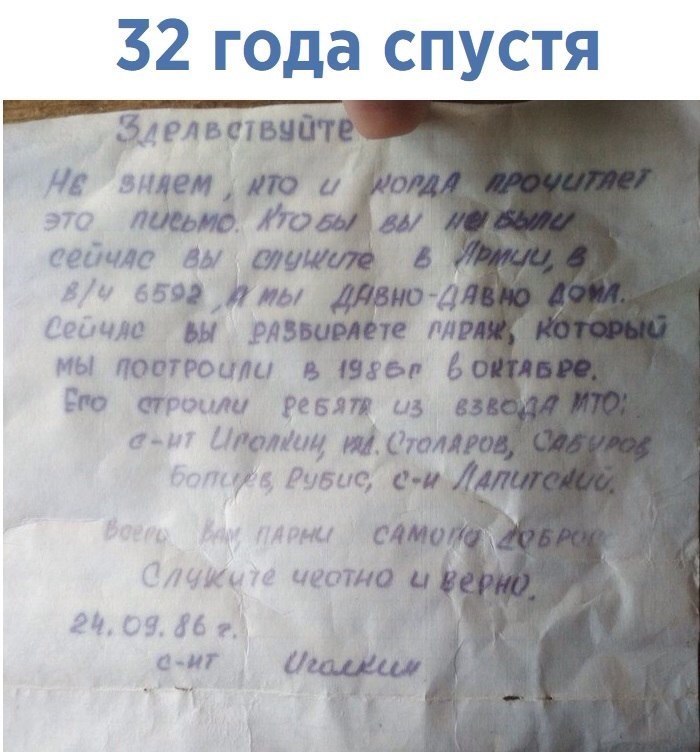 32 года спустя
Здравствуйте
Не знаем, кто и когда прочитает
это письмо. Кто бы вы не были
сейчас вы служите в Армии, в
в/ч 6592, а мы давно-давно дома.
Сейчас вы разбираете гараж, который
мы построили в 1986г в октябре.
Его строили ребята из взвода МТО:
с-нт Иголкин, Столяров, Сабиров,
Рубис, с-н Лапитский.
Всего Вам, парни самого доброго
Служите честно и верно.
24.09.86 г.
с-нт Иголкин